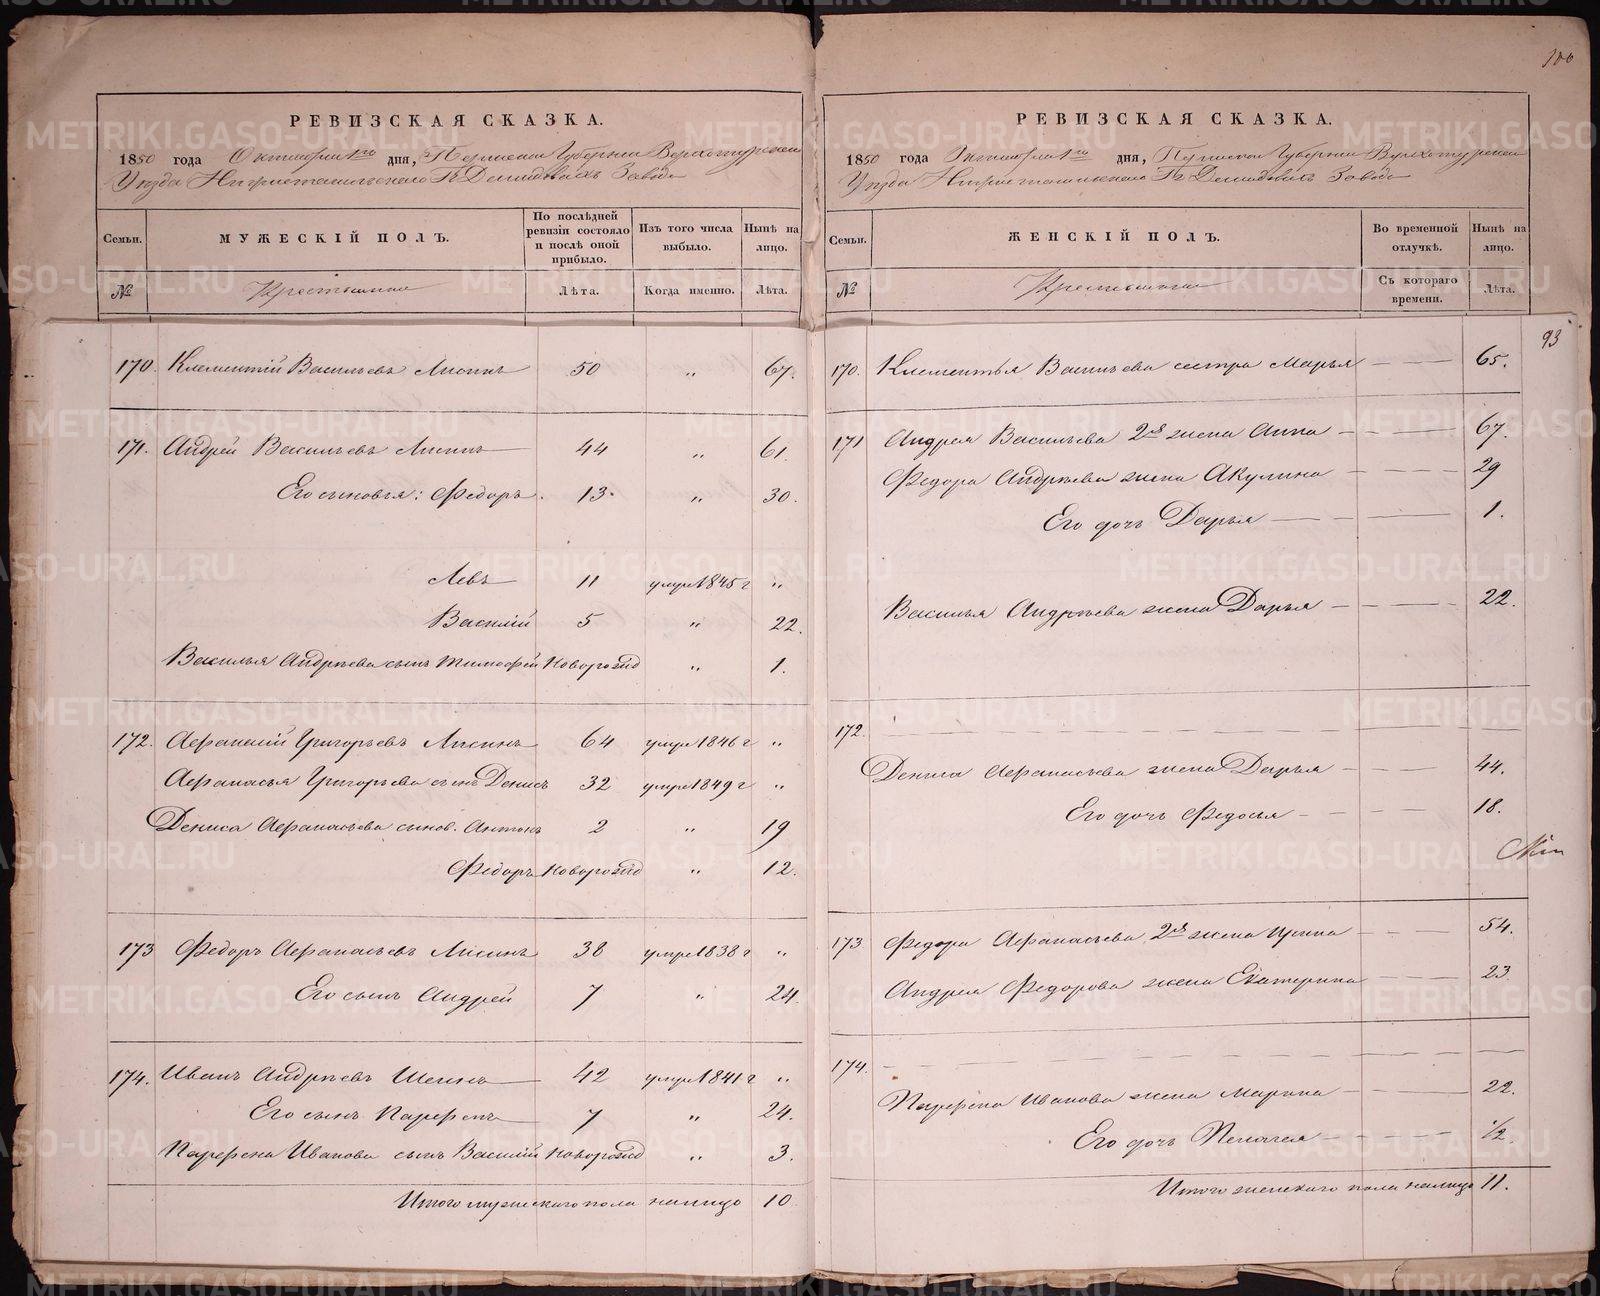 100
РЕВИЗСКАЯ СКАЗКА.
1850 года Октября 1го дня, Пермской Губернии Верхотурскаго
Уезда Нижнетагильскаго Гг Демидовыхъ Завода
Семьи. МУЖЕСКІЙ ПОЛЪ. По послѣдней ревизіи состояло и послѣ оной прибыло. Изъ того числа выбыло. Нынѣ на лицо.
№ Крестьянъ Лѣта. Когда именно. Лѣта.
170. Клементій Васильевъ Лисинъ 50 " 67.
171. Андрей Васильевъ Лисинъ 44 " 61.
Его сыновья: Федоръ. 13. " 30.
Левъ 11 умре 1845 г "
Василій 5 " 22.
Василья Андреева сынъ Тимофей новорожд " 1.
172. Афанасій Григорьевъ Лисинъ 64 умре 1846 г "
Афанасья Григорьева сынъ Денисъ 32 умре 1849 г "
Дениса Афанасьева сынов. Антонъ 2 " 19
Федоръ новорожд " 12.
173 Федоръ Афанасьевъ Лисинъ 38 умре 1838 г "
Его сынъ Андрей 7 " 24.
174. Иванъ Андреевъ Шеинъ 42 умре 1841 г "
Его сынъ Парфенъ 7 " 24.
Парфена Иванова сынъ Василій новорожд " 3.
Итого мужескаго пола налицо 10
РЕВИЗСКАЯ СКАЗКА.
1850 года Октября 1го дня, Пермской Губернии Верхотурскаго
Уезда Нижнетагильскаго Гг Демидовыхъ Завода
Семьи. ЖЕНСКІЙ ПОЛЪ. Во временной отлучкѣ. Нынѣ на лицо.
№ Съ котораго времени. Лѣта.
93
170. Клементья Васильева сестра Марья 65.
171 Андрея Васильева 2я жена Анна 67.
Федора Андреева жена Акулина 29
Его дочь Дарья 1.
Василья Андреева жена Дарья 22.
172.
Дениса Афанасьева жена Дарья 44.
Его дочь Федосья 18.
173 Федора Афанасьева 2я жена Ирина 54.
Андрея Федорова жена Екатерина 23
174.
Парфена Иванова жена Марина 22.
Его дочь Пелагея 1/2.
Итого женскаго пола налицо 11.
METRIKI.GASO-URAL.RU